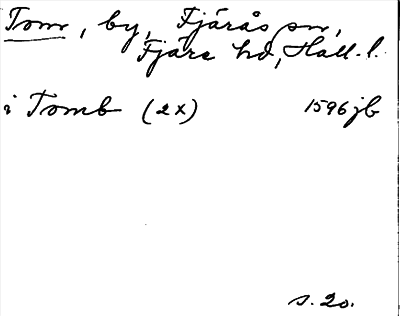 Tom, by, Fjärås sn,
Fjäre hd, Hall. l.
i Tomb (2x) 1596 jb
s. 20.